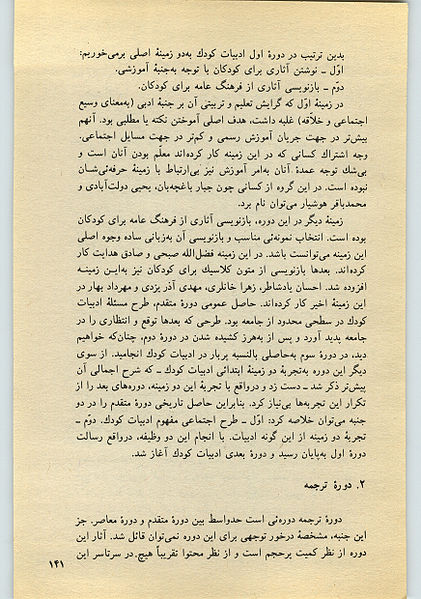 بدین ترتیب در دورهٔ اول ادبیات کودك به‌دو زمینهٔ اصلی برمی‌خوریم:
اوّل ـ نوشتن آثاری برای کودکان با توجه به‌جنبهٔ آموزشی.
دوّم ـ بازنویسی آثاری از فرهنگ عامه برای کودکان.
در زمینهٔ اوّل که گرایش تعلیم و تربیتی آن بر جنبهٔ ادبی (به‌معنای وسیع
اجتماعی و خلاّقه) غلبه داشت، هدف اصلی آموختن نکته یا مطلبی بود. آنهم
بیش‌تر در جهت جریان آموزش رسمی و کم‌تر در جهت مسایل اجتماعی.
وجه اشتراك کسانی که در این زمینه کار کرده‌اند معلّم بودن آنان است و
بی‌شك توجه عمدهٔ آنان به‌امر آموزش نیز بی‌ارتباط با زمینهٔ حرفه‌ئی‌شان
نبوده است. در این گروه از کسانی چون جبار باغچه‌بان، یحیی دولت‌آبادی و
محمدباقر هوشیار می‌توان نام برد.
زمینهٔ دیگر در این دوره، بازنویسی آثاری از فرهنگ عامه برای کودکان
بوده است. انتخاب نمونه‌ئی مناسب و بازنویسی آن به‌زبانی ساده وجوه اصلی
این زمینه می‌توانست باشد. در این زمینه فضل‌الله صبحی و صادق هدایت کار
کرده‌اند. بعدها بازنویسی از متون کلاسیك برای کودکان نیز به‌ایـن زمینـه
افزوده شد. احسان یارشاطر، زهرا خانلری، مهدی آذر یزدی و مهرداد بهار در
این زمینهٔ اخیر کار کرده‌اند. حاصل عمومی دورهٔ متقدم، طرح مسئلهٔ ادبیات
کودك در سطحی محدود از جامعه بود. طرحی که بعدها توقع و انتظاری را در
جامعه پدید آورد و پس از به‌هرز کشیده شدن در دورهٔ دوم، چنان‌که خواهیم
دید، در دورهٔ سوم به‌حاصلی بالنسبه پربار در ادبیات کودك انجامید. از سوی
دیگر این دوره به‌تجربهٔ دو زمینهٔ ابتدائی ادبیات کودك ـ که شرح اجمالی آن
پیش‌تر ذکر شد ـ دست زد و درواقع با تجربهٔ این دو زمینه، دوره‌های بعد را از
تکرار این تجربه‌ها بی‌نیاز کرد. بنابراین حاصل تاریخی دورهٔ متقدم را در دو
جنبه می‌توان خلاصه کرد: اوّل ـ طرح اجتماعی مفهوم ادبیات کودك. دوّم ـ
تجربهٔ دو زمینه از این گونه ادبیات. با انجام این دو وظیفه، درواقع رسالت
دورهٔ اول به‌پایان رسید و دورهٔ بعدی ادبیات کودك آغاز شد.
۲. دورهٔ ترجمه
دورهٔ ترجمه دوره‌ئی است حدواسط بین دورهٔ متقدم و دورهٔ معاصر. جز
این جنبه، مشخصهٔ درخور توجهی برای این دوره نمی‌توان قائل شد. آثار این
دوره از نظر کمیت پرحجم است و از نظر محتوا تقریباً هیچ. در سرتاسر این
۱۴۱